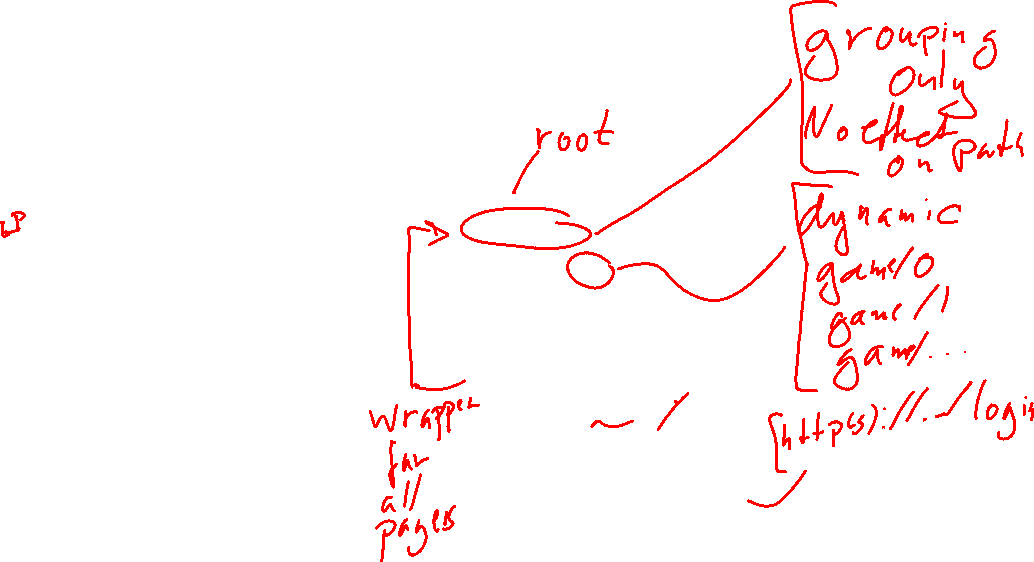 grouping
only
No effect
on path
root
dynamic
game/0
game/1
game/...
wrapper
for
all
pages
~ /
http(s)://.../login